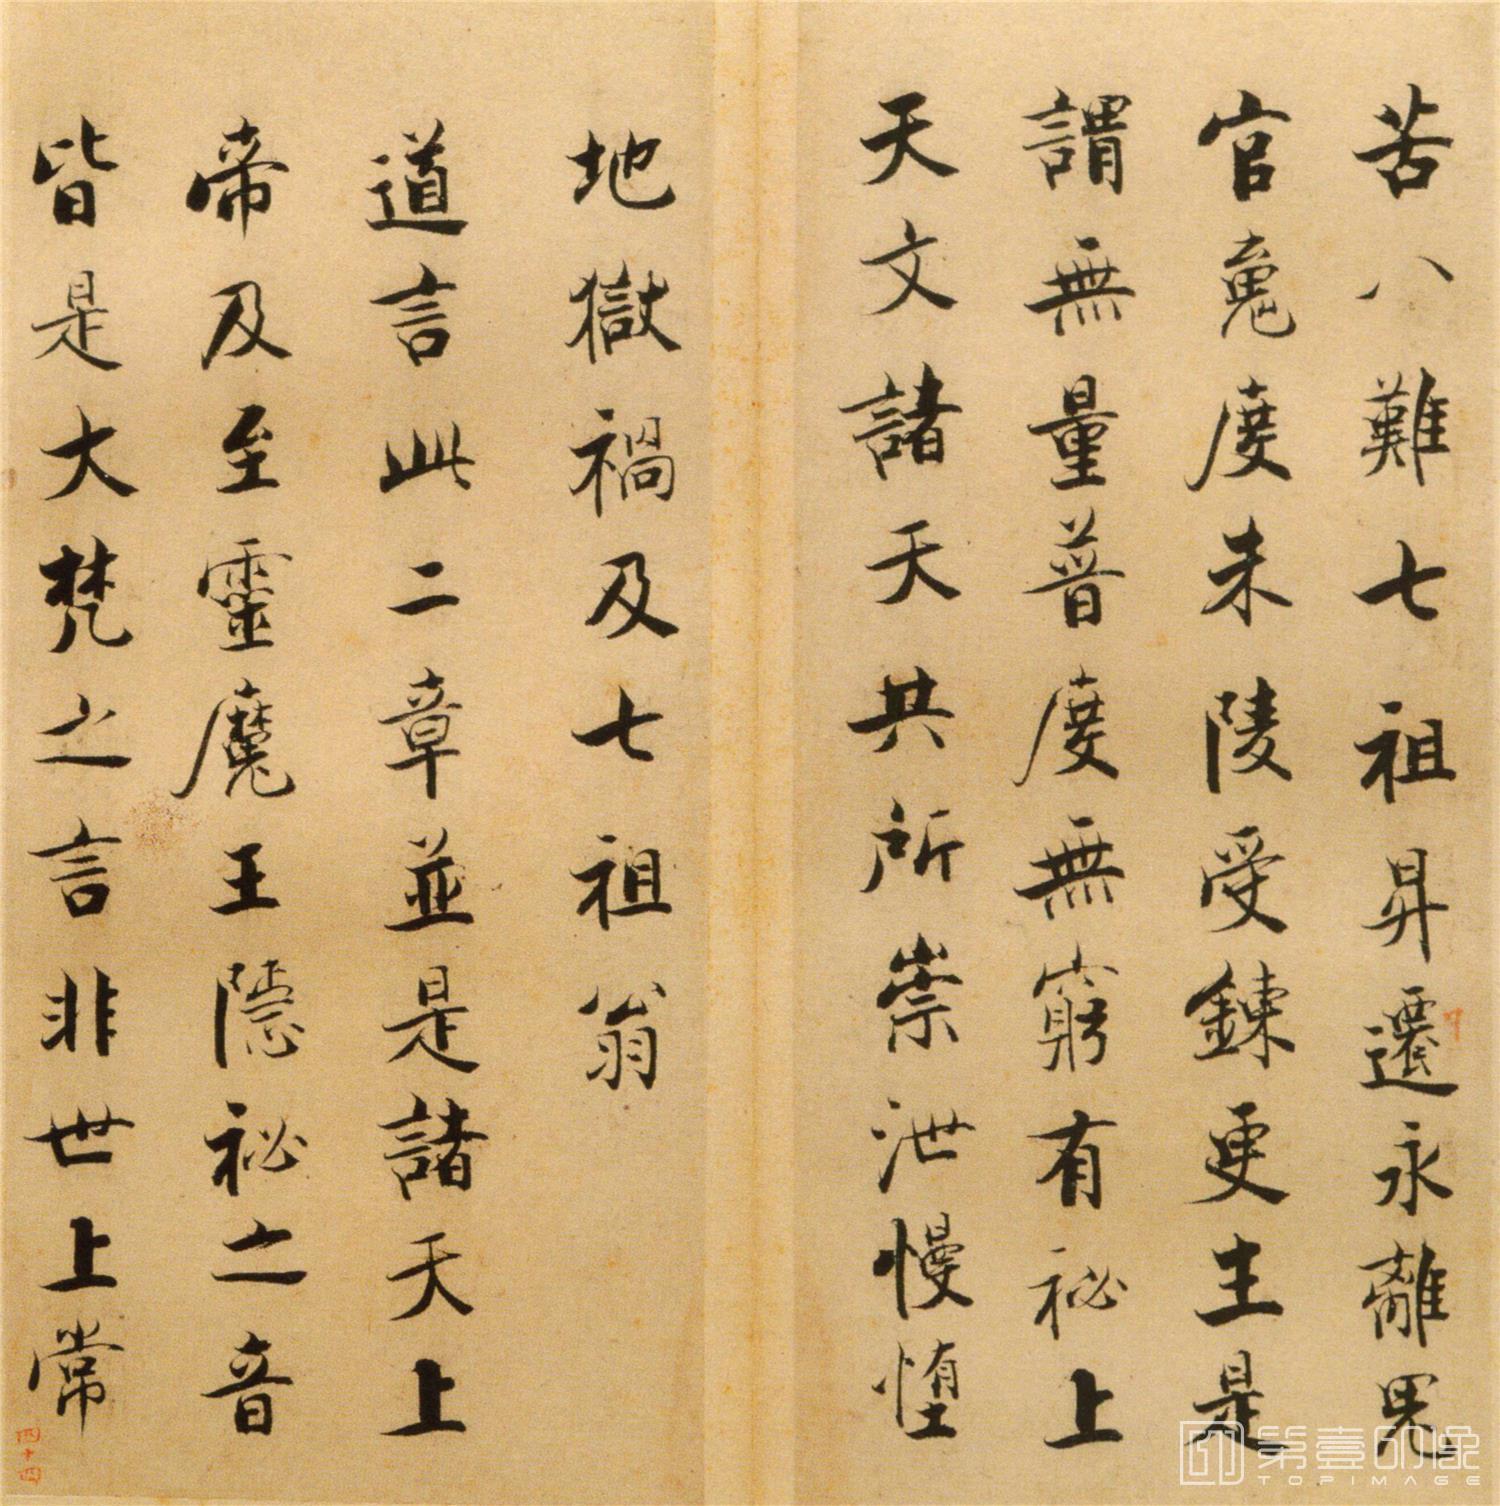 苦八難七祖昇遷永離鬼
官魂度朱陵受鍊更生是
謂無量普度無窮有祕上
天文諸天共所崇泄慢墮
地獄禍及七祖翁
道言此二章並是諸天上
帝及至靈魔王隱祕之音
皆是大梵之言非世上常
四十四
第壹印象
TOPIMAGE